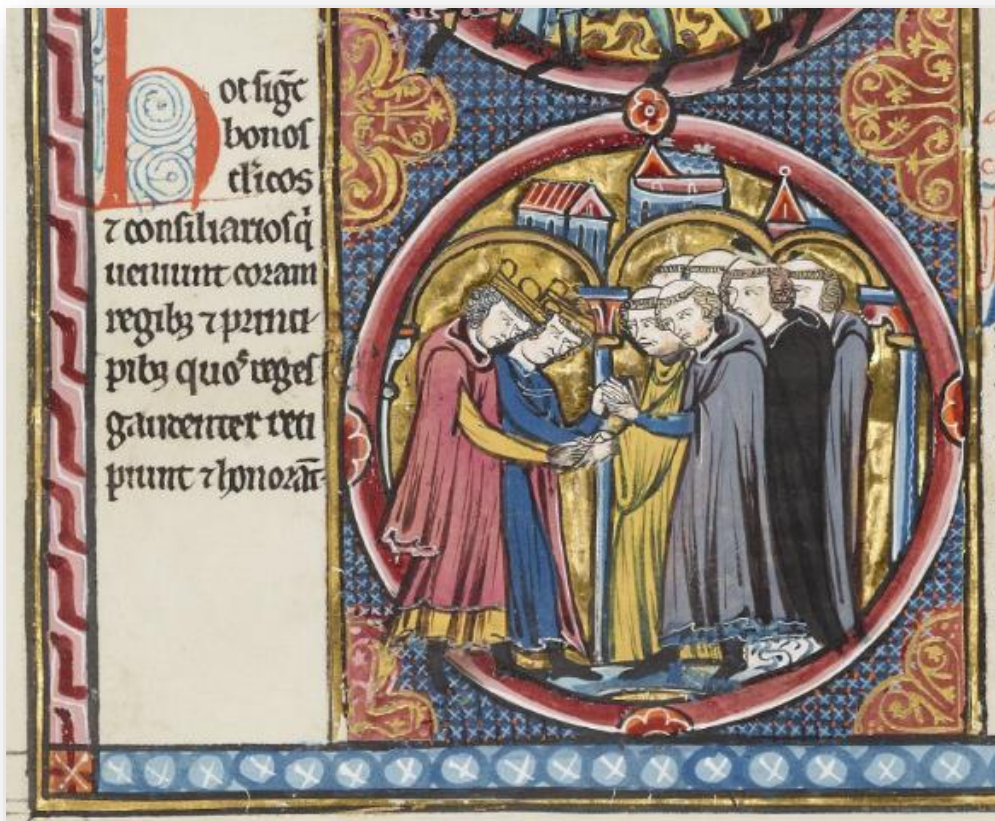 hoc sigẽ
bonos
cl̃icos
⁊ consiliarios q̃
ueniunt coram
regibꝫ ⁊ princi-
pibꝫ quoˢ reges
gaudenter reci
piunt ⁊ honorãt·